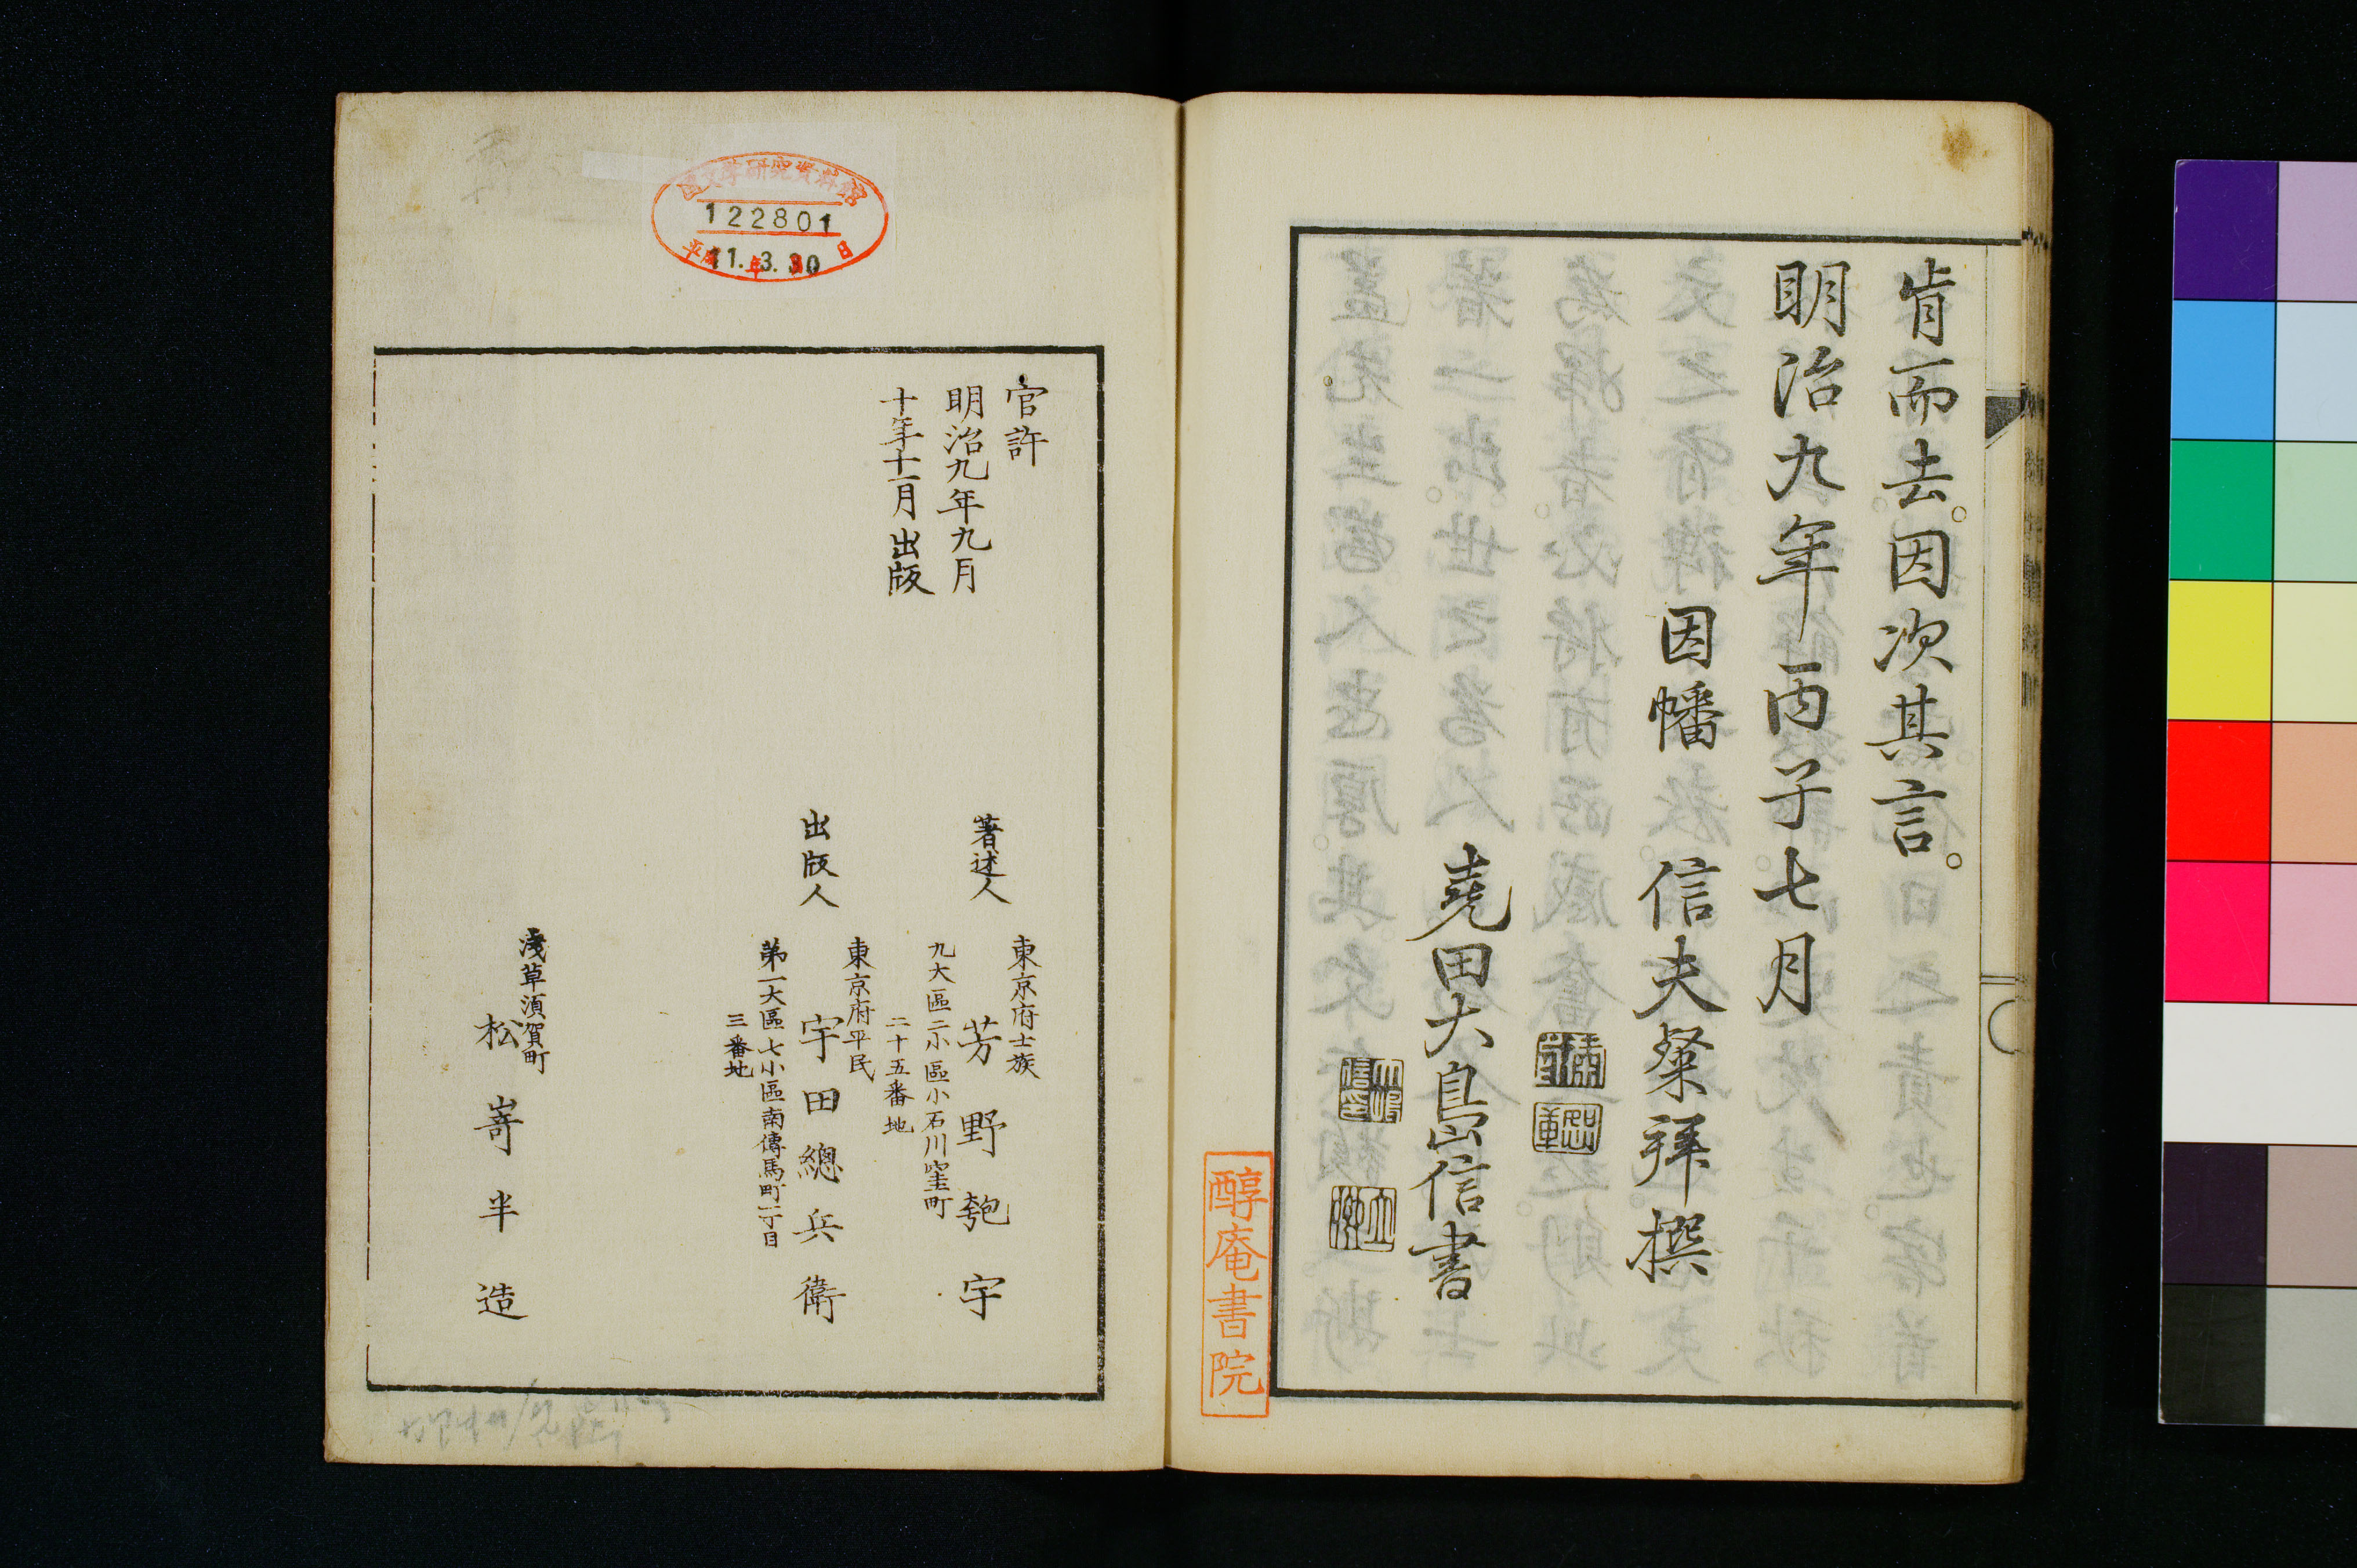 肯而去。因次其言。
明治九年丙子七月
因幡 信夫粲拜撰
堯田大島信書
醇庵書院
官許
明治九年九月
十年十一月出版
著述人
東京府士族
芳野匏宇
九大區二小區小石川窪町
二十五番地
出版人
東京府平民
宇田總兵衛
第一大區七小區南傳馬町一丁目
三番地
淺草須賀町
松嵜半造
國文學研究資料館
122801
平成11年3.30日